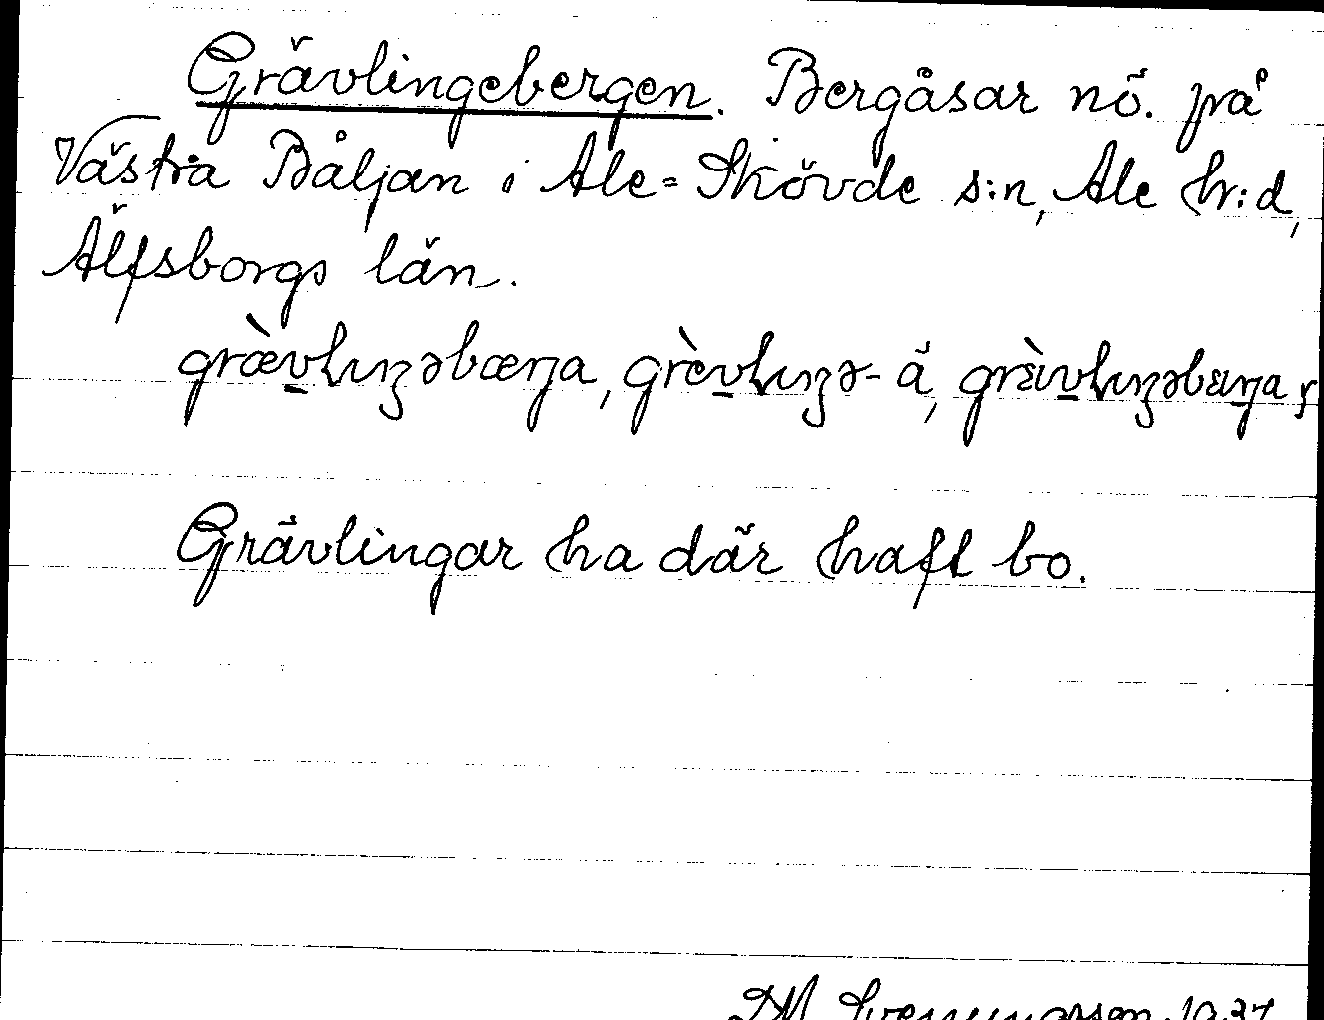 Grävlingebergen. Bergåsar nö. på
Västra Båljan i Ale-Skövde s:n, Ale hr:d,
Älfsborgs län.
græ̀vlıŋəbærja, grèvlıŋə- ä,
Grävlingar ha där haft bo.
1937